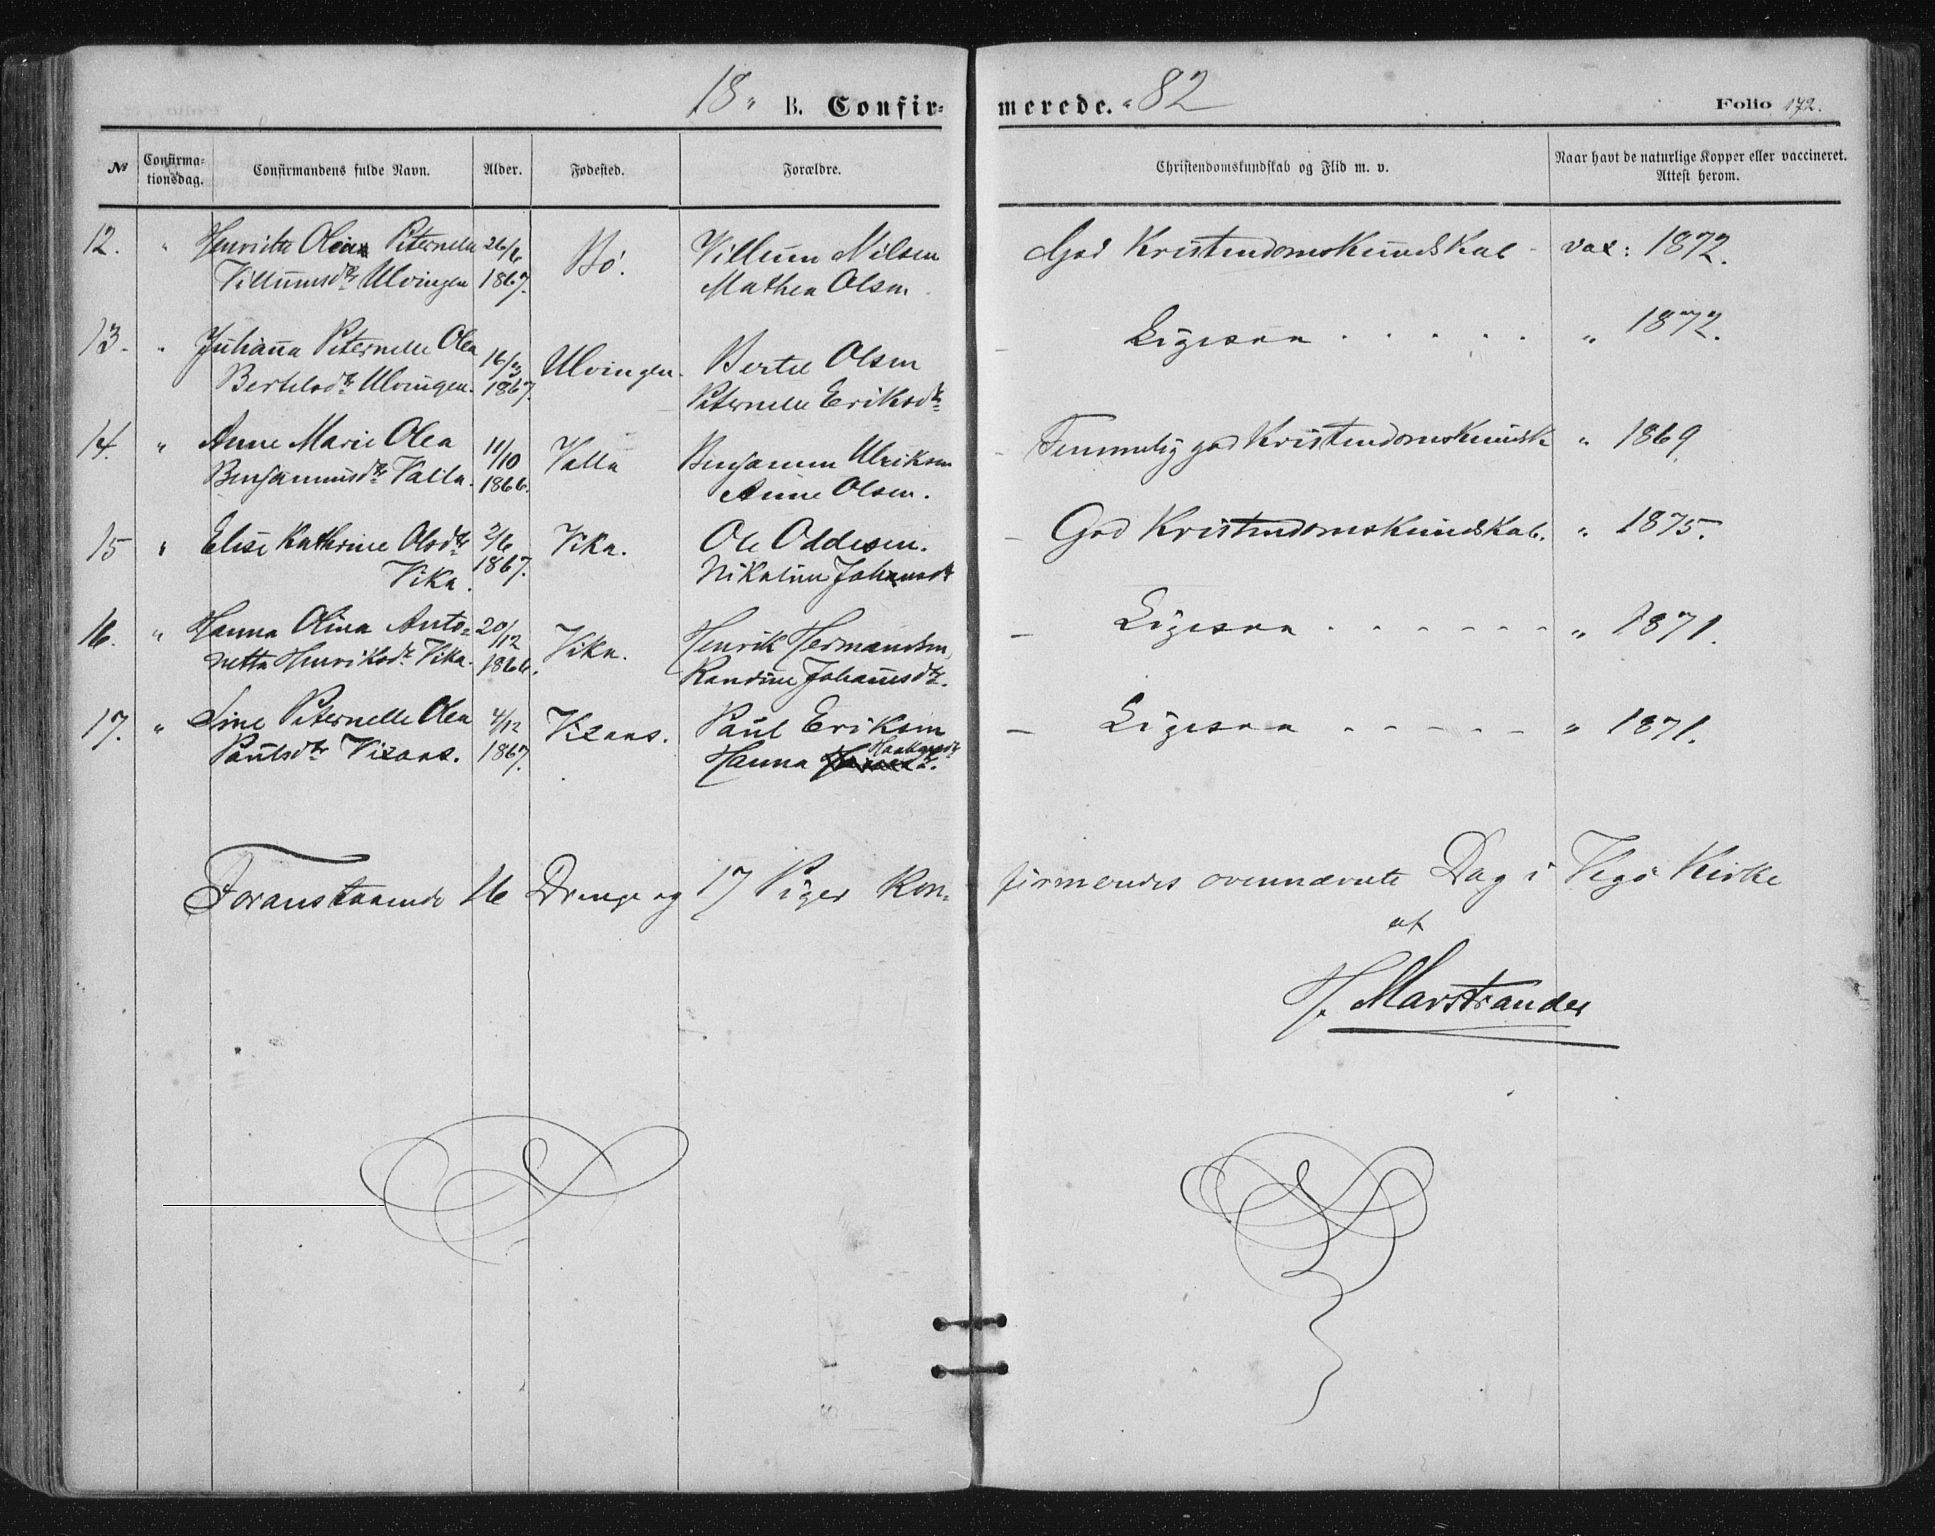 18 „ B. Confir= merede. „ 82 Folio 172.
№ Confirma=tionsdag. Confirmandens fulde Navn. Alder. Fødested. Forældre. Christendomskundskab og Flid m. v. Naar havt de naturlige Kopper eller vaccineret. Attest herom.
12. „ Henrikte Olea Peternelle 26/6 Bø. Villum Nilsen God Kristendomskundskab - vax: 1872.
Villumsdtr Ulvingen 1867. Mathea Olsen
13. „ Juhanna Peternelle Olea 16/3 Ulvingen. Bertel Olsen Ligesaa . . . . . „ 1872.
Bertelsdtr Ulvingen. 1867. Peternelle Eriksdtr
14. „ Anne Marie Olea 11/10 Valla Benjamin Ulriksen - Temmelig god Kristendomskundsk „ 1869
Benjaminsdtr Valla. 1866. Anne Olsen.
15 „ Elise Kathrine Olsdtr 2/6 Vika. Ole Oddesen. - God Kristendomskundskab. „ 1875.
Vika. 1867. Nikoline Johansdtr
16. „ Hanna Olina Anto= 20/12 Vika. Henrik Hermansen, - Ligesaa . - - - - - „ 1871.
netta Henriksdtr Vika. 1866. Randine Johannesdtr.
17. „ Sine Peternelle Olea 4/12 Vizaas. Paul Eriksen - Ligesaa - - - - - „ 1871.
Paulsdtr Vizaas. 1867. Hanna Haakonsdtr
Foranstaaende 16 Drenge og 17 Piger kon= firmeredes ovennævnte Dag i Vegø Kirke
af
H. Marstrander